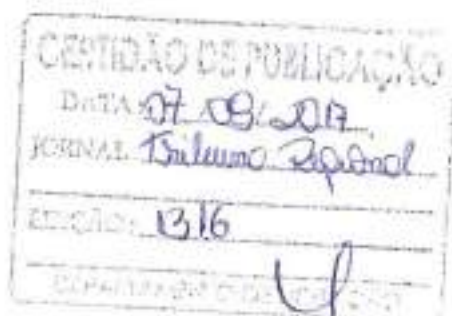 CERTIDÃO DE PUBLICAÇÃO
DATA 07 09 2017
JORNAL Tribuna Regional
EDIÇÃO: 1316